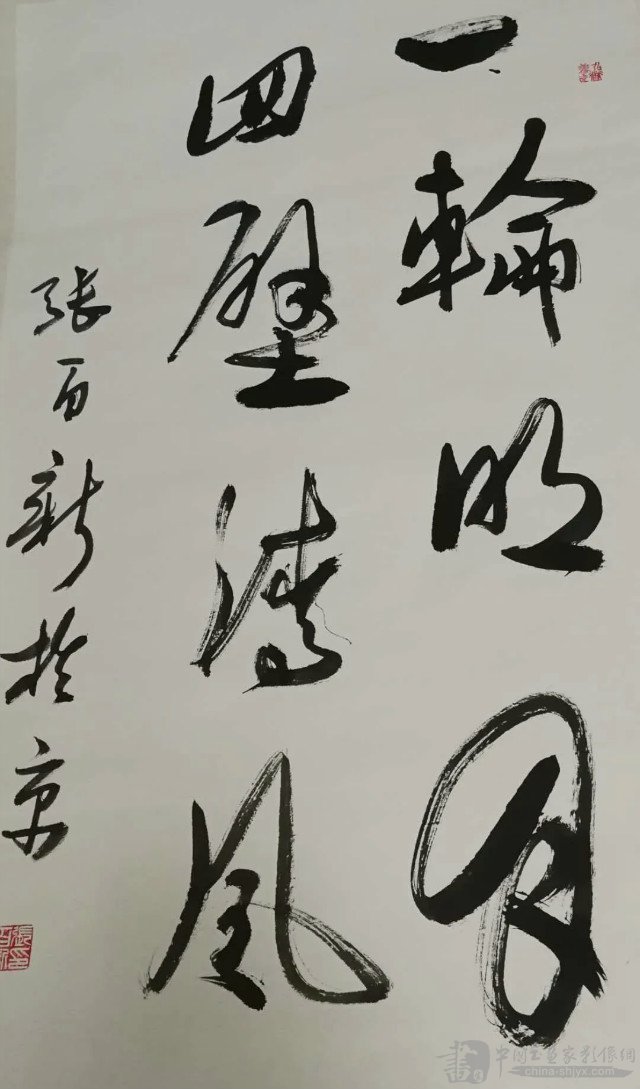 一輪明月
四壁清風
張百新於京
中國書畫家影像網
china-shjyx.com